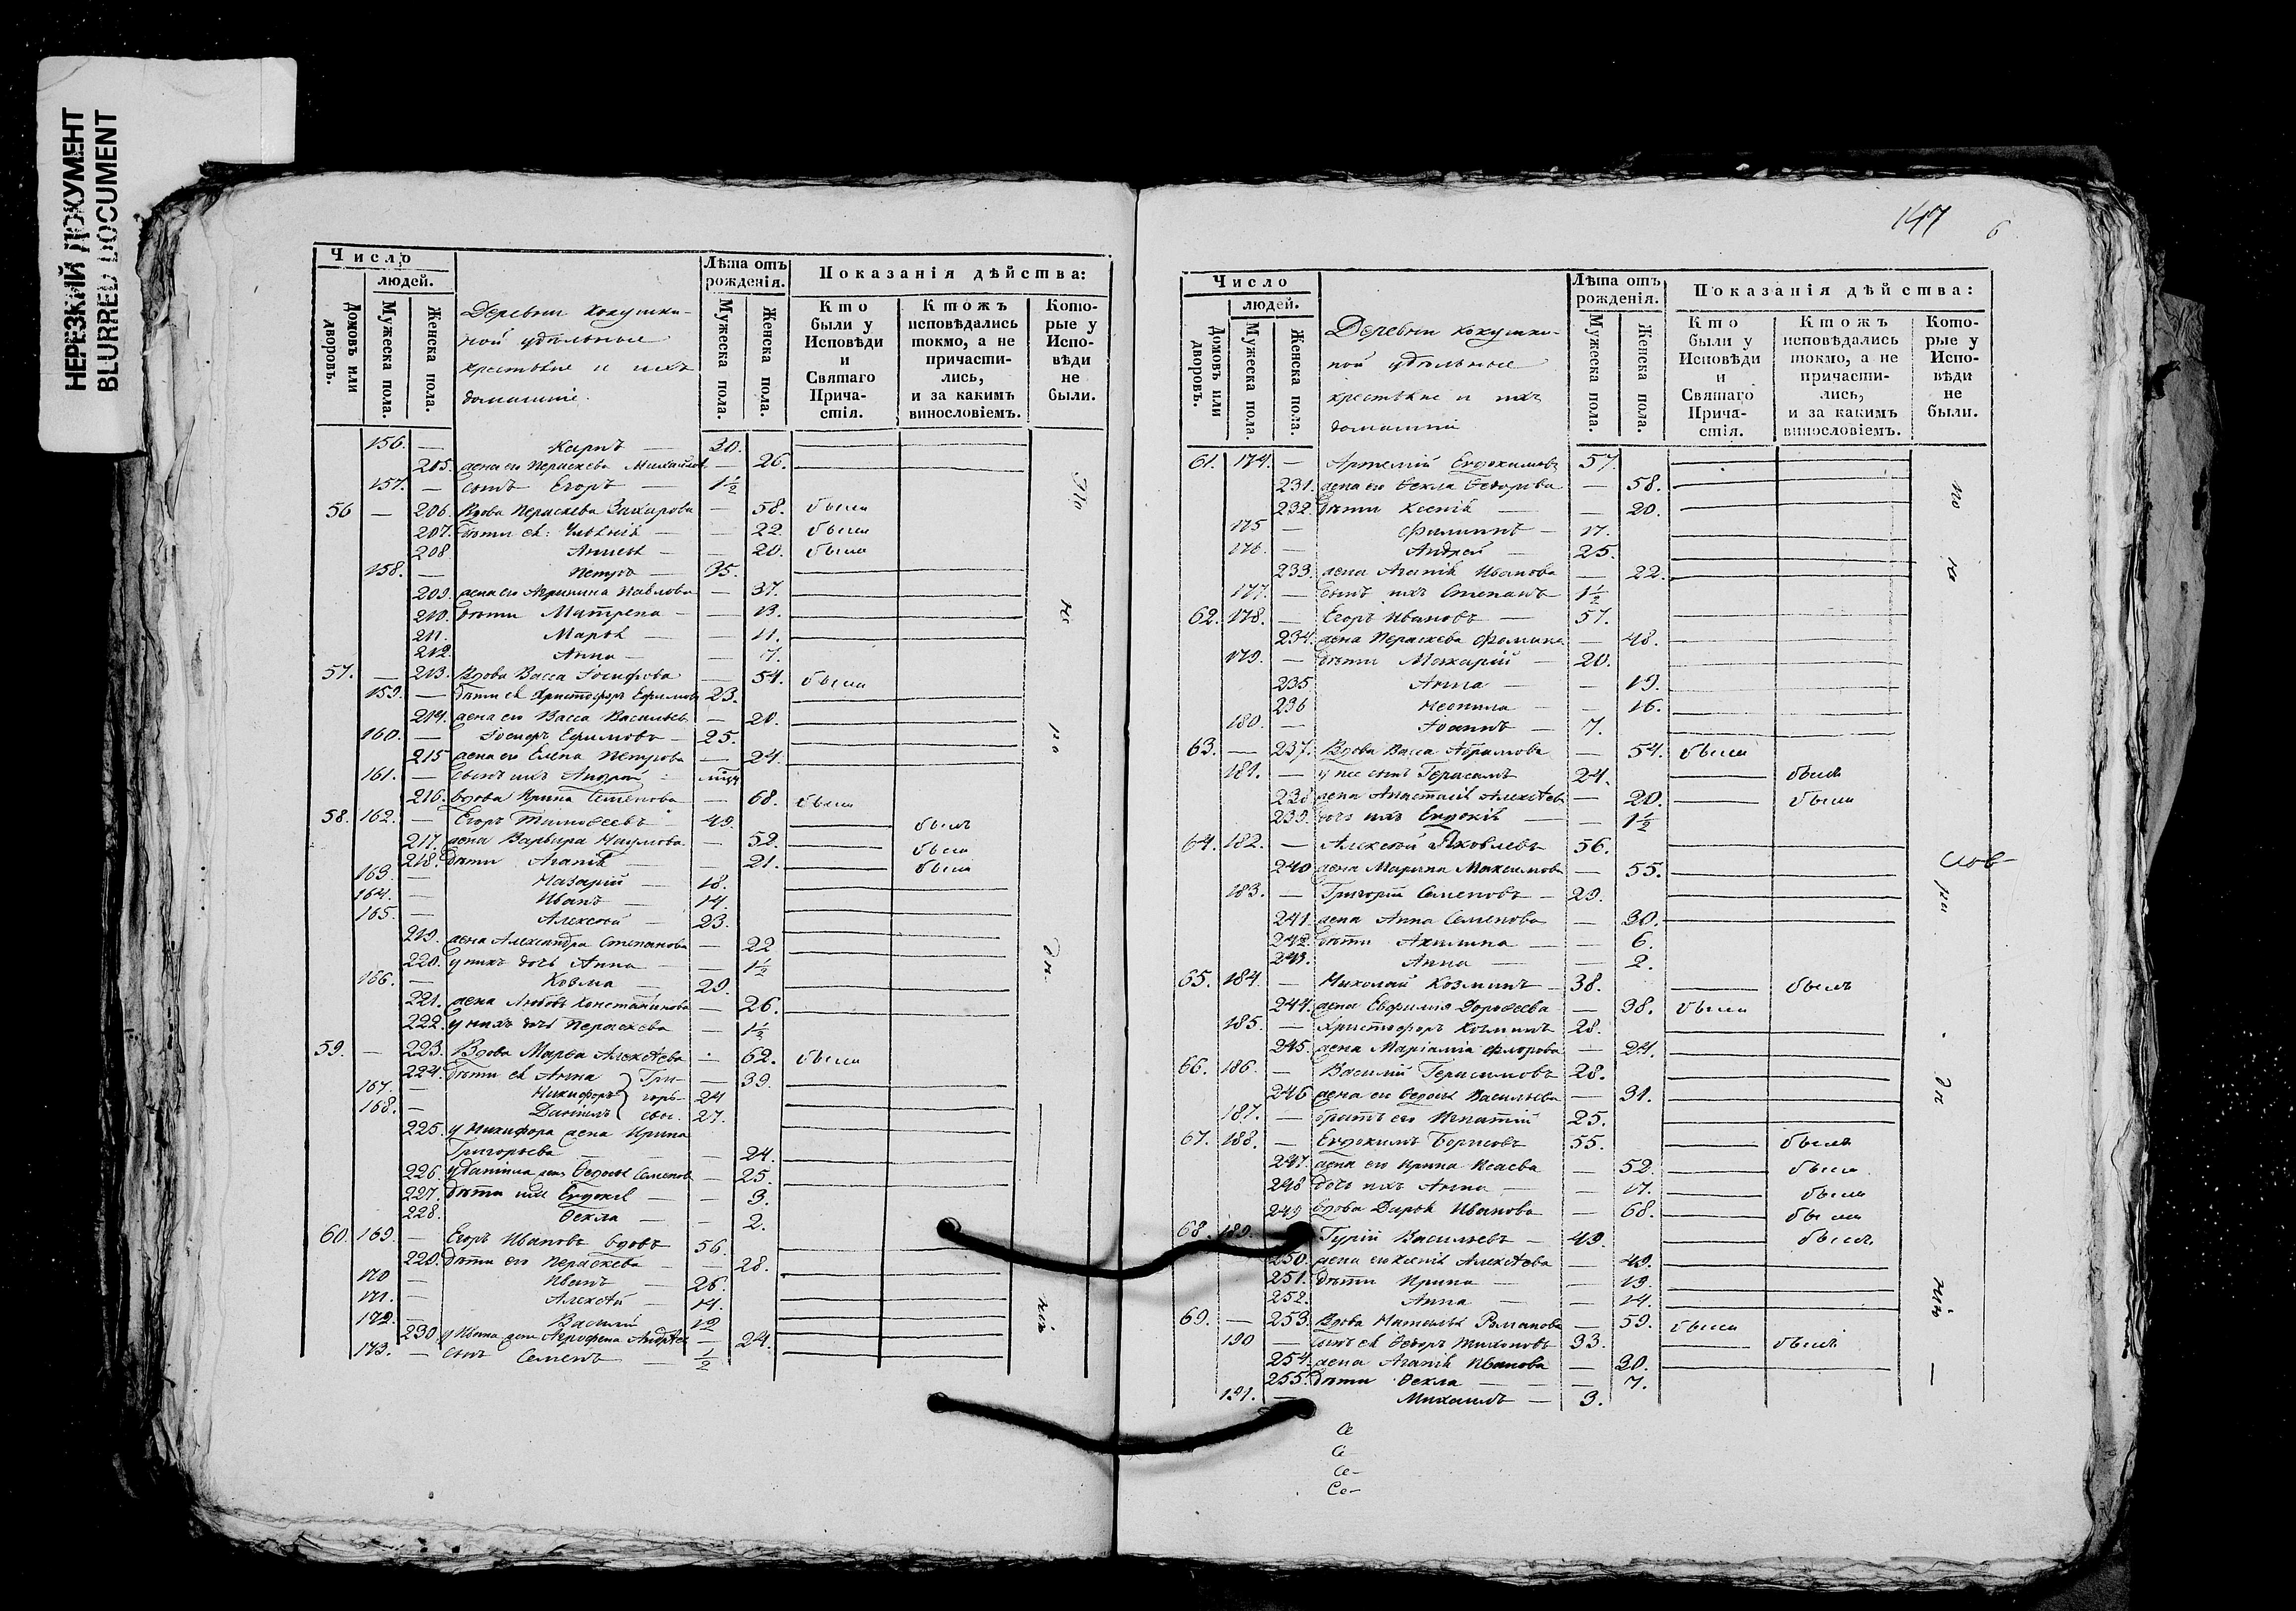 НЕРЕЗКИЙ ДОКУМЕНТ
BLURRED DOCUMENT
Число
людей.
Домовъ или дворовъ.
Мужеска пола.
Женска пола.
Деревни Кокушки-
ной удѣльные
крестьяне и ихъ
домашніе.
Лѣта отъ рожденія.
Мужеска пола.
Женска пола.
Показанія дѣйства:
Кто были у Исповѣди и Святаго Причастія.
Ктожъ исповѣдались токмо, а не причастились, и за какимъ винословіемъ.
Которые у Исповѣди не были.
156. — Карпъ — 30.
205. жена его Параскева Михайлов — 26.
157. — сынъ Егоръ — 1½
56 — 206. Вдова Параскева Захарова — 58. была
207. дѣти ея: — 22. была
208 — 20. была
158. — Петръ — 35.
209. жена его Агрипина Павлова — 37.
210. дѣти Матрена — 13.
211. Марья — 11.
212. Анна — 7.
57. — 213. Вдова Васса Іосифова — 54. была
159. — дѣти ея Христофоръ Ефимовъ 23.
214. жена его Васса Васильев — 20.
160. — Іосифъ Ефимовъ — 25.
215 жена его Елена Петрова — 24.
161. — сынъ ихъ Андрей
216. вдова Ирина Семенова — 68. была
58. 162. — Егоръ Тимофеевъ 49. былъ
217. жена Варвара Наумова — 52. была
218. дѣти Агапія — 21. была
163. — Назарій — 18.
164. — Иванъ — 14.
165. — Алексѣй — 23.
219. жена Александра Степанова — 22
220. у нихъ дочь Анна — 1½
166. — Козма — 29.
221. жена Любовь Константинова — 26.
222. у нихъ дочь Параскева — 1½
59. — 223. Вдова Марѳа Алексѣева — 62. была
224. дѣти ея Анна } Гри- — 39.
167. — Никифоръ } горь- 24
168. — Даніилъ } евы. 27.
225. у Никифора жена Ирина
Григорьева — 24.
226. у Даніила жена Ѳедосья Семенов — 25.
227. дѣти ихъ Евдокія — 3.
228. Ѳекла — 2.
60. 169. — Егоръ Ивановъ вдовъ 56.
229. дѣти его Параскева — 28.
170 — Иванъ — 26.
171. — Алексѣй — 14.
172. — Василій 12
230. у Ивана жена Агрофена Андрѣев — 24.
173. — сынъ Семенъ ½
147
6
Число
людей.
Домовъ или дворовъ.
Мужеска пола.
Женска пола.
Деревни Кокушки-
ной удѣльные
крестьяне и ихъ
домашніи
Лѣта отъ рожденія.
Мужеска пола.
Женска пола.
Показанія дѣйства:
Кто были у Исповѣди и Святаго Причастія.
Ктожъ исповѣдались токмо, а не причастились, и за какимъ винословіемъ.
Которые у Исповѣди не были.
61. 174. — Артемій Евдокимовъ 57.
231. жена его Ѳекла Ѳедорова — 58.
232. дѣти Ксенія — 20.
175 — Филиппъ — 17.
176. — Андрей — 25.
233. жена Агапія Иванова — 22.
177. — сынъ ихъ Степанъ 1½
62. 178. — Егоръ Ивановъ — 57.
234. жена Параскева Фомина — 48.
179. — дѣти Макарій — 20.
235 Анна — 19.
236 Неонила — 16.
180. — Іоаннъ — 7.
63. — 237. Вдова Васса Абрамова — 54. была
181. — у нее сынъ Герасимъ 24. былъ
238 жена Анастасія Алексѣев — 20. была
239. дочь ихъ Евдокія — 1½
64. 182. — Алексѣй Яковлевъ 56.
240 жена Марина Максимова — 55.
183. — Григорій Семеновъ — 29.
241. жена Анна Семенова — 30.
242. дѣти Акилина — 6.
243. Анна — 2.
65. 184. — Николай Козминъ — 38. былъ
244. жена Евфимія Дорофеева — 38. была
185. — Христофоръ Козминъ 28.
245. жена Маріамія Флорова — 24.
66. 186. — Василій Герасимовъ 28.
246 жена его Ѳедосья Васильева — 31.
187. — братъ его Игнатій 25.
67. 188. — Евдокимъ Борисовъ 55. былъ
247. жена его Ирина Исаева — 52. была
248 дочь ихъ Анна — 17. была
249 вдова Дарья Иванова — 68. была
68. 189. Гурій Васильевъ — 49. былъ
250. жена его Ксенія Алексѣева — 49.
251. дѣти Ирина — 19.
252. Анна — 14.
69. — 253. Вдова Наталья Романова — 59. была
190 — сынъ ея Ѳедоръ Тихоновъ 33. былъ
254. жена Агапія Иванова — 30.
255. дѣти Ѳекла — 7.
191. — Михаилъ — 3.